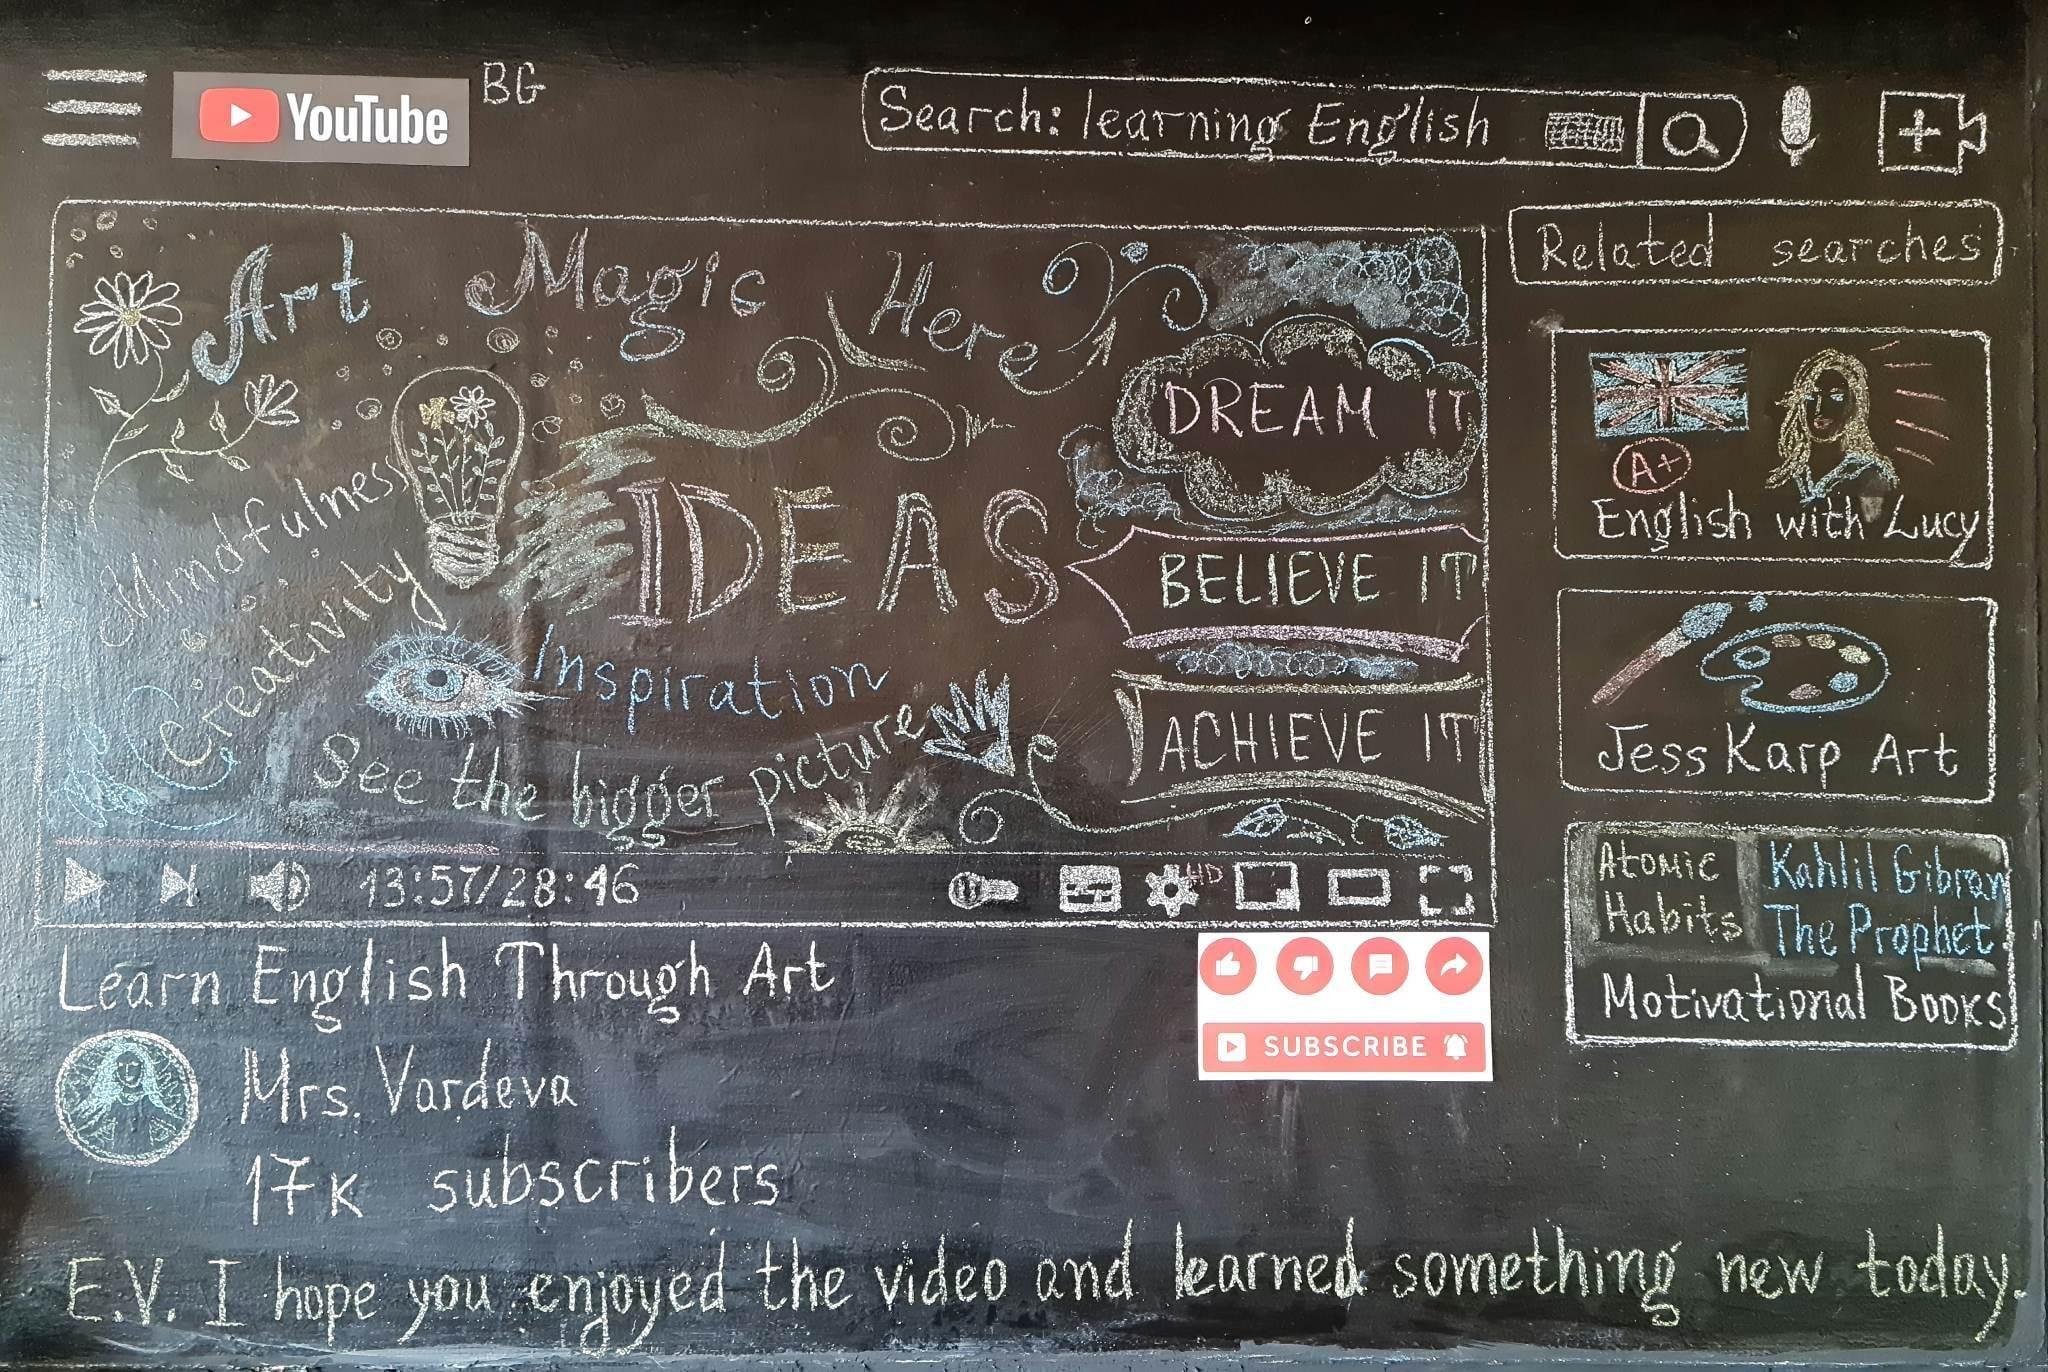 YouTube BG
Search: learning English
Related searches
Art Magic Here
DREAM IT
IDEAS
BELIEVE IT
Mindfulness
Creativity
Inspiration
ACHIEVE IT
See the bigger picture
13:57/28:46
HD
A+
English with Lucy
Jess Karp Art
Atomic
Habits
Kahlil Gibran
The Prophet
Motivational Books
Learn English Through Art
SUBSCRIBE
Mrs. Vardeva
17K subscribers
E.V. I hope you enjoyed the video and learned something new today.